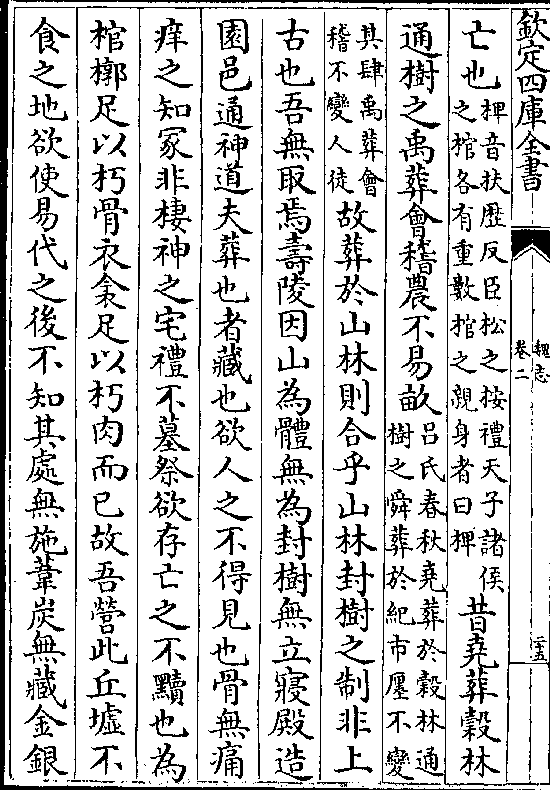 欽定四庫全書
魏志
卷二
二五
亡也
椑音扶歷反臣松之按禮天子諸侯
之棺各有重數棺之親身者曰椑
昔堯葬榖林
通樹之禹葬會稽農不易畝
呂氏春秋堯葬於榖林通
樹之舜葬於紀市㕓不變
其肆禹葬會
稽不變人徒
故葬於山林則合乎山林封樹之制非上
古也吾無取焉壽陵因山為體無為封樹無立寢殿造
園邑通神道夫葬也者藏也欲人之不得見也骨無痛
痒之知冢非棲神之宅禮不墓祭欲存亡之不黷也為
棺槨足以朽骨衣衾足以朽肉而已故吾營此丘墟不
食之地欲使易代之後不知其處無施葦炭無藏金銀